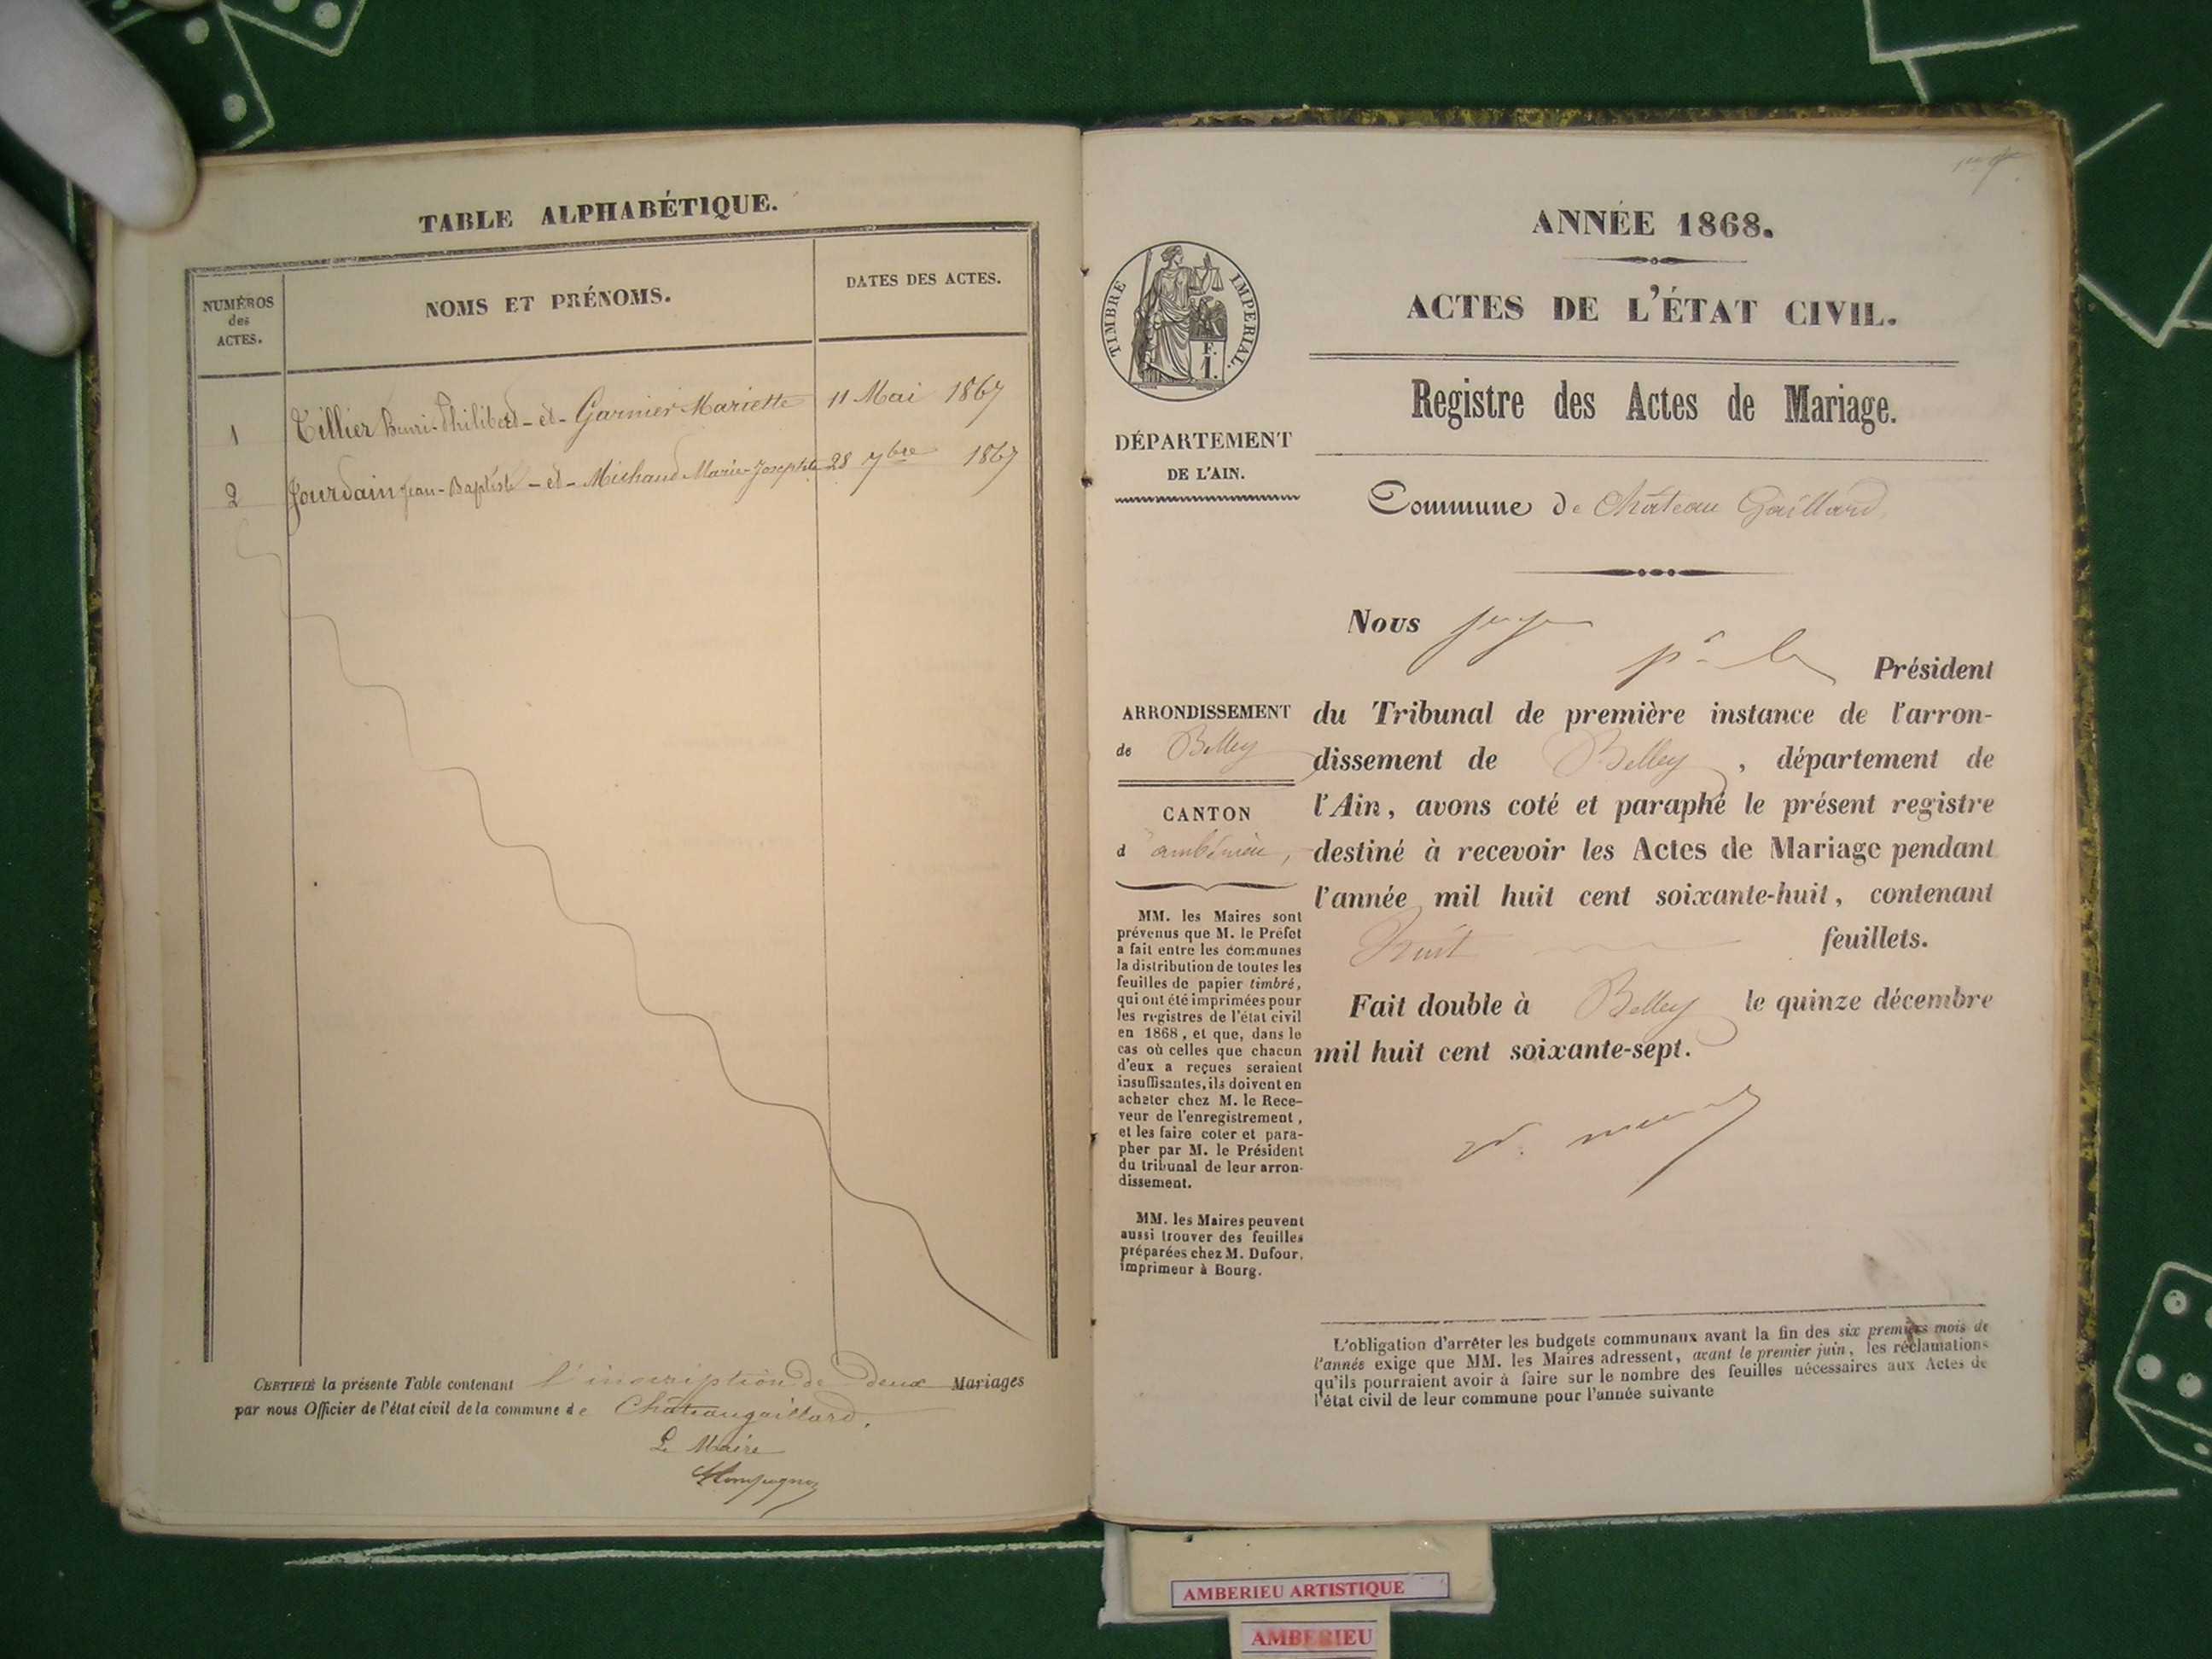 TABLE ALPHABÉTIQUE.
NUMÉROS
des
ACTES.
NOMS ET PRÉNOMS.
DATES DES ACTES.
1 Tillier Henri-Philibert - et - Garnier Mariette 11 Mai 1867
2 Jourdain Jean-Baptiste - et - Michaud Marie-Josephte 28 7bre 1867
CERTIFIÉ la présente Table contenant l'inscription de deux Mariages
par nous Officier de l'état civil de la commune de Châteaugaillard.
Le Maire
ANNÉE 1868.
ACTES DE L'ÉTAT CIVIL.
TIMBRE IMPERIAL.
F.
1.
Registre des Actes de Mariage.
DÉPARTEMENT
DE L'AIN.
Commune de Château Gaillard
Nous juge
pr le Président
du Tribunal de première instance de l'arron-
dissement de Belley, département de
l'Ain, avons coté et paraphé le présent registre
destiné à recevoir les Actes de Mariage pendant
l'année mil huit cent soixante-huit, contenant
huit feuillets.
Fait double à Belley le quinze décembre
mil huit cent soixante-sept.
ARRONDISSEMENT
de Belley
CANTON
d'ambérieu,
MM. les Maires sont
prévenus que M. le Préfet
a fait entre les communes
la distribution de toutes les
feuilles de papier timbré,
qui ont été imprimées pour
les registres de l'état civil
en 1868, et que, dans le
cas où celles que chacun
d'eux a reçues seraient
insuffisantes, ils doivent en
acheter chez M. le Rece-
veur de l'enregistrement,
et les faire coter et para-
pher par M. le Président
du tribunal de leur arron-
dissement.
MM. les Maires peuvent
aussi trouver des feuilles
préparées chez M. Dufour,
imprimeur à Bourg.
L'obligation d'arrêter les budgets communaux avant la fin des six premiers mois de
l'année exige que MM. les Maires adressent, avant le premier juin, les réclamations
qu'ils pourraient avoir à faire sur le nombre des feuilles nécessaires aux Actes de
l'état civil de leur commune pour l'année suivante
AMBERIEU ARTISTIQUE
AMBERIEU